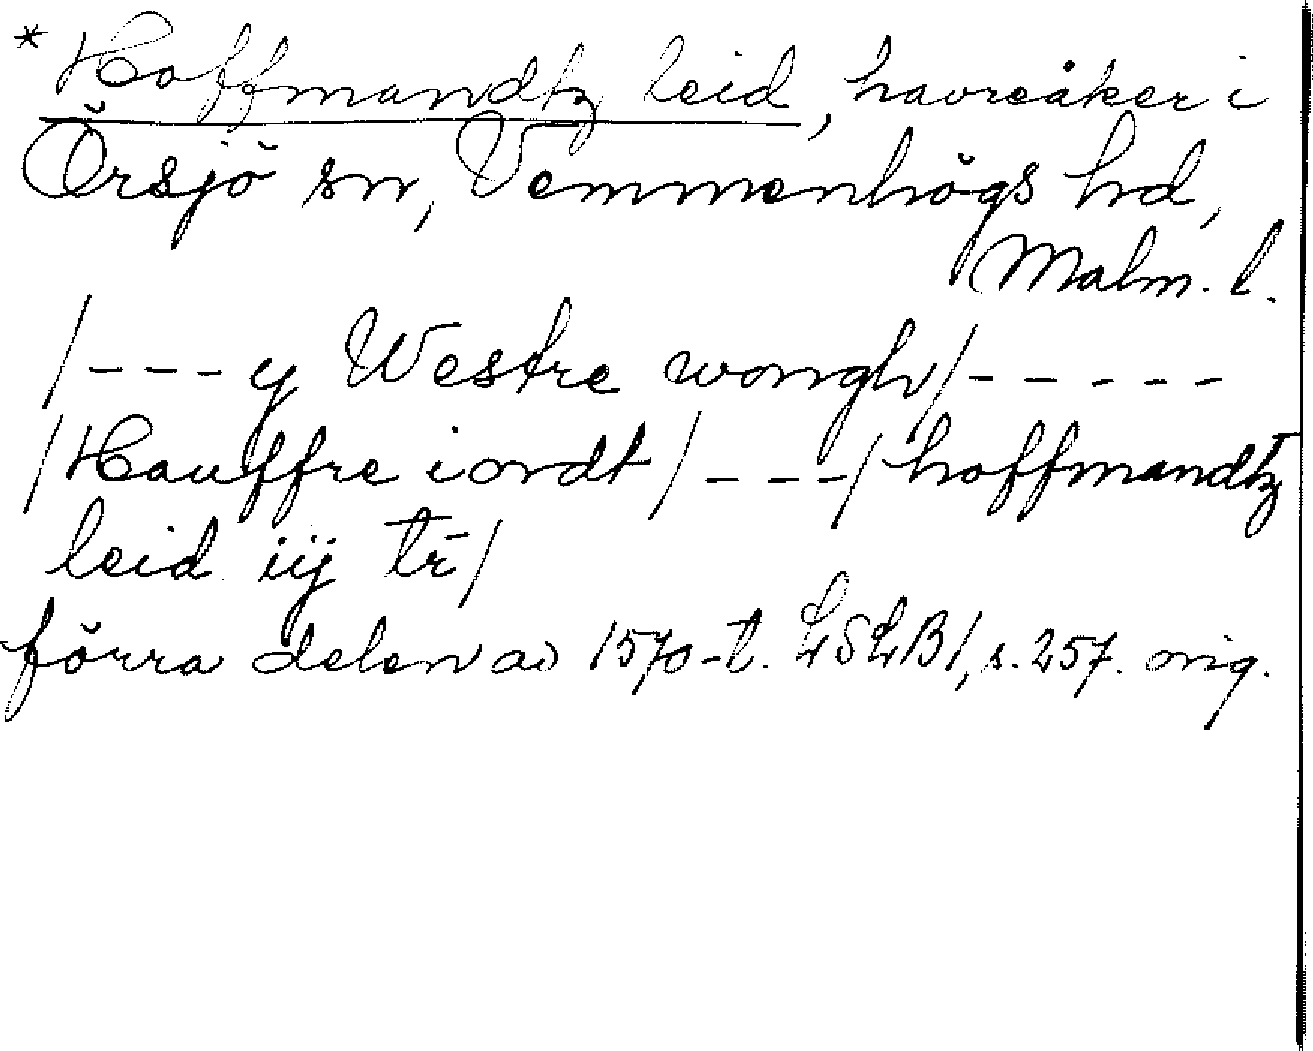 * Hoffmandtz leid, havreåker i
Örsjö sn, Vemmenhögs hd,
Malm. l.
/---y Westre wongh/-----
/Hauffre iordt/---/hoffmandtz
leid iij tr̄/
förra delen av 1570-t. LSLB1, s. 257. orig.